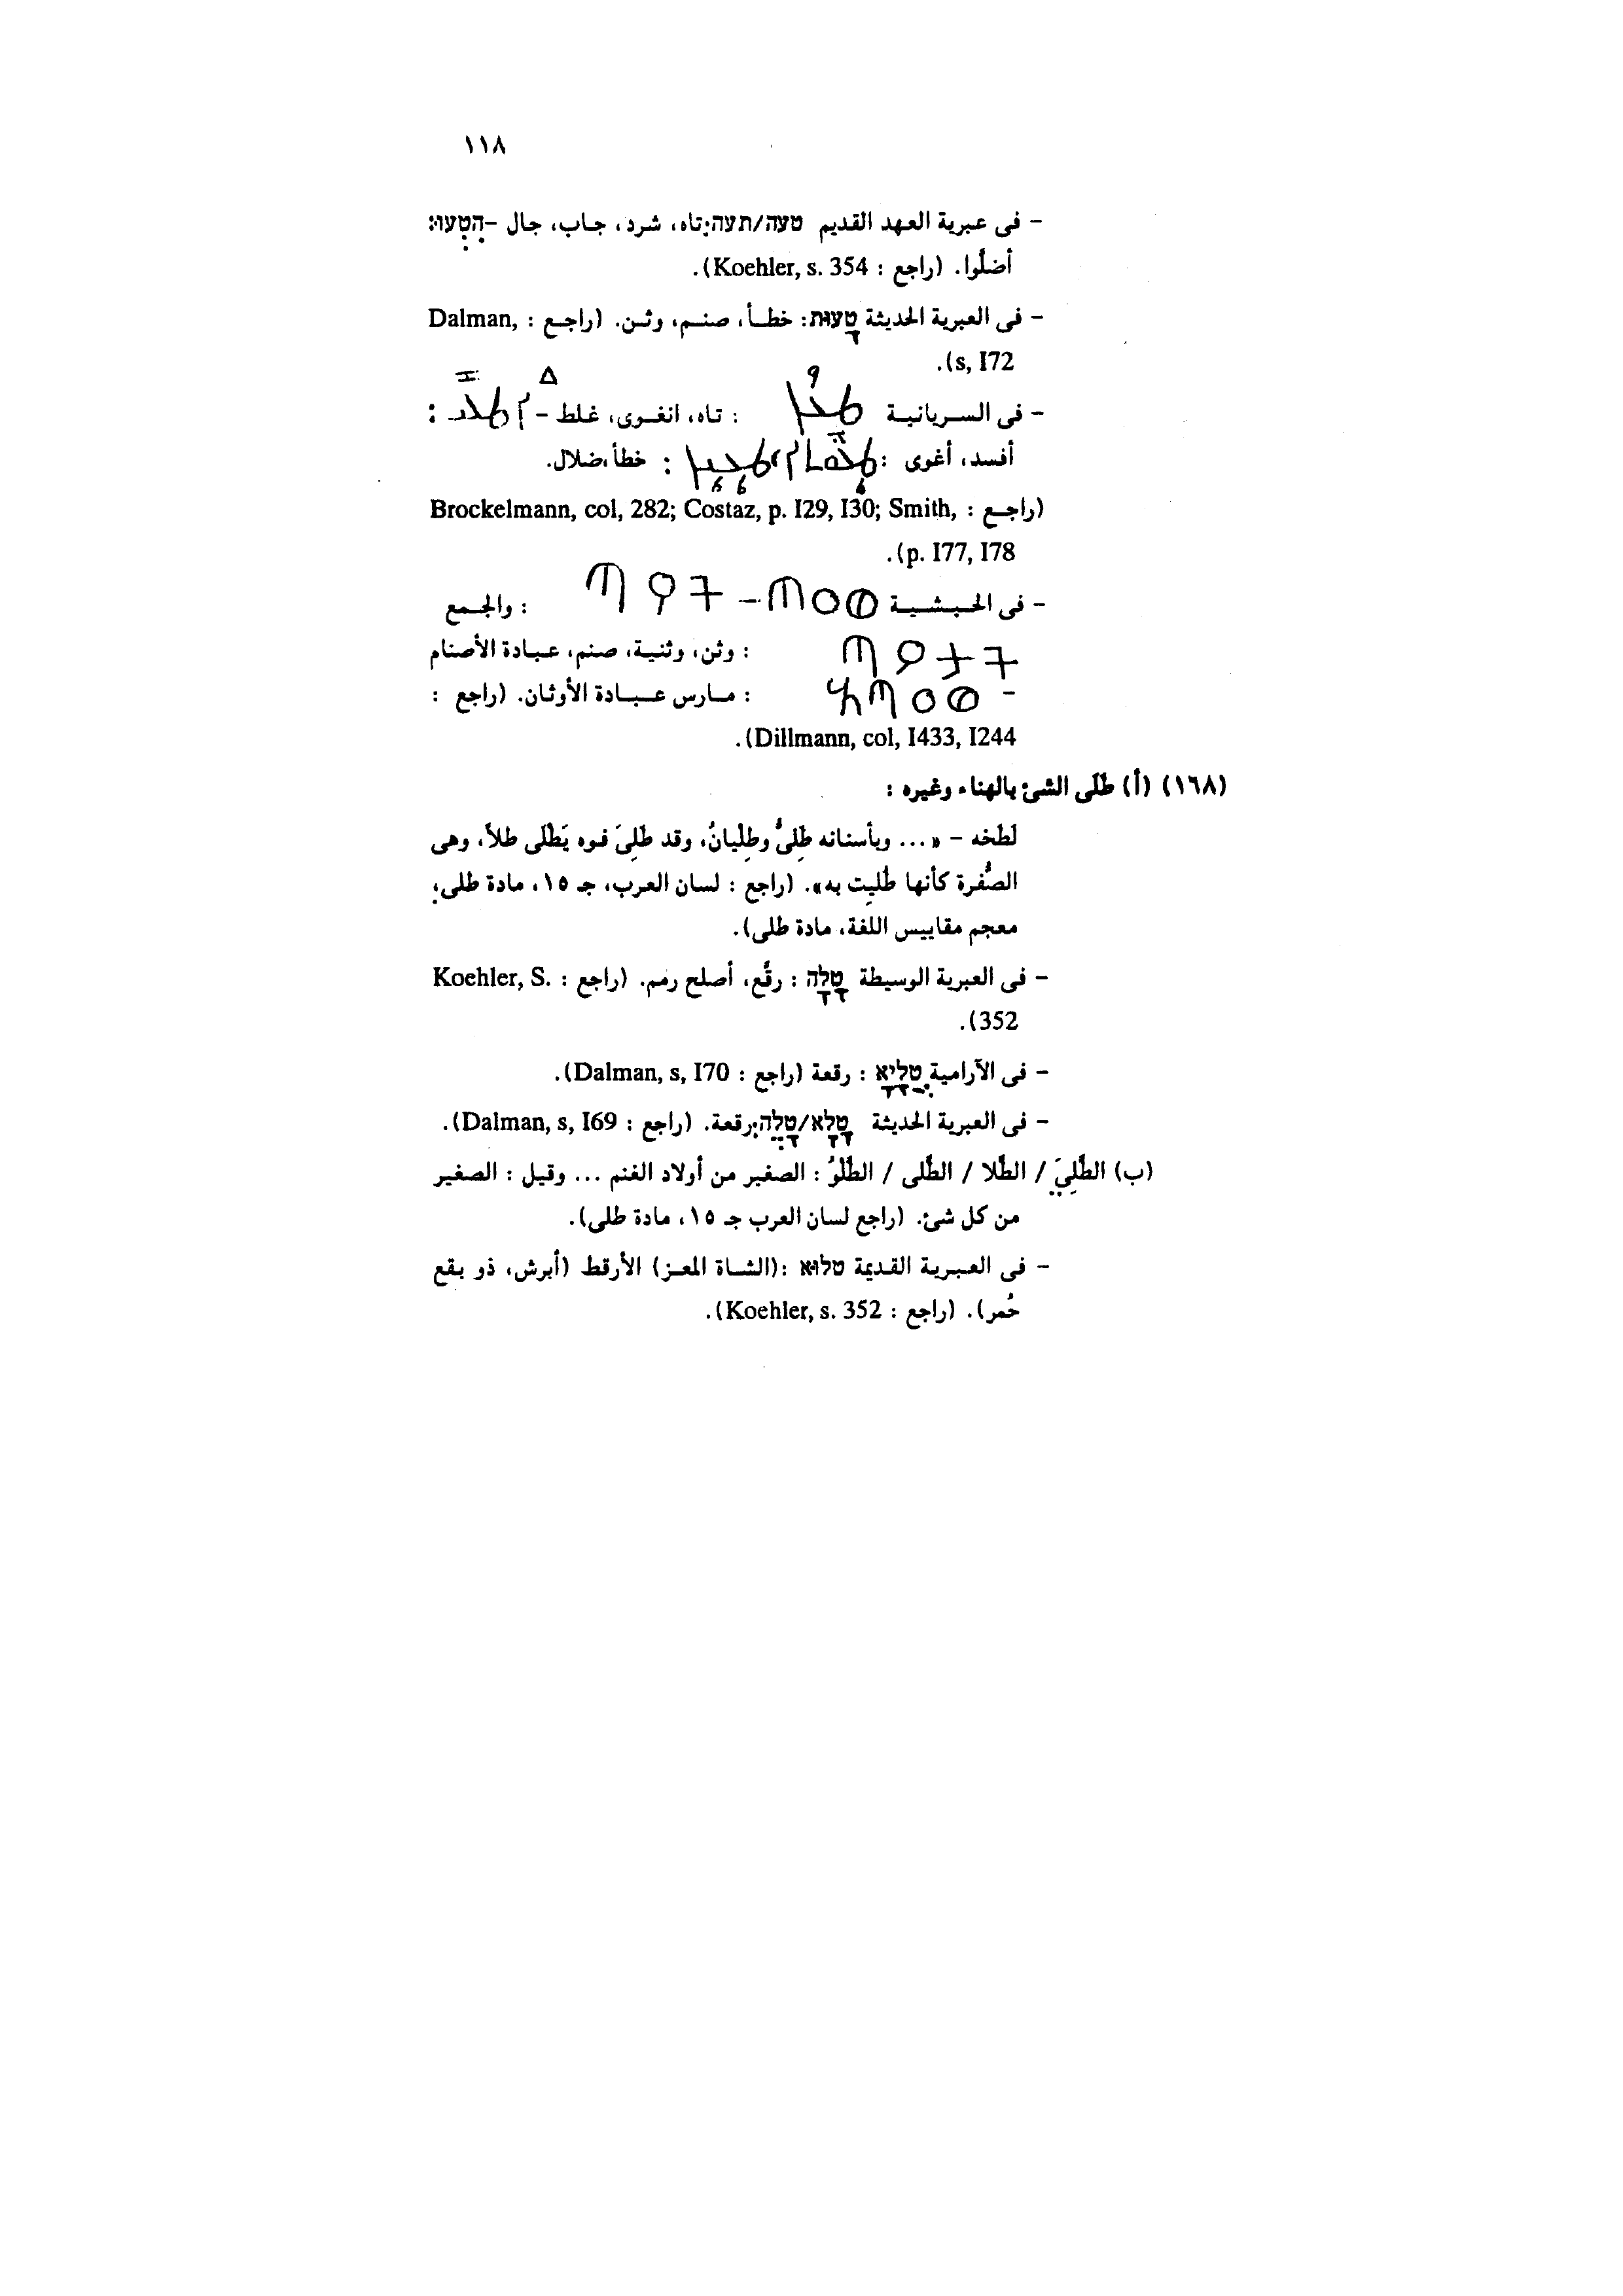 ١١٨
- فى عبرية العهد القديم טעה/תעה: تاه، شرد، جاب، جال - הִטְעוּ:
أضلُّوا. (راجع : Koehler, s. 354).
- فى العبرية الحديثة טָעוּת: خطأ، صنم، وثن. (راجع : Dalman,
s, I72).
- فى السريانية : تاه، انغوى، غلط - :
أفسد، أغوى : : خطأ، ضلال.
(راجع : Brockelmann, col, 282; Costaz, p. I29, I30; Smith,
p. I77, I78).
- فى الحبشية : والجمع
: وثن، وثنية، صنم، عبادة الأصنام
- : مارس عبادة الأوثان. (راجع :
Dillmann, col, I433, I244).
(١٦٨) (أ) طَلَى الشئ بالهناء وغيره :
لَطَخه - « ... وبأسنانه طَلِىٌّ وطِلْيانٌ، وقد طَلِىَ فوه يَطْلَى طلاً، وهى
الصُّفرة كأنها طُليِت به». (راجع : لسان العرب، جـ ١٥، مادة طلى؛
معجم مقاييس اللغة، مادة طلى).
- فى العبرية الوسيطة טָלָה : رقَّع، أصلح رمم. (راجع : Koehler, S.
352).
- فى الآرامية טליא : رقعة (راجع : Dalman, s, I70).
- فى العبرية الحديثة טָלָא/טלה: رقعة. (راجع : Dalman, s, I69).
(ب) الطَّلِيَ / الطَّلا / الطَّلى / الطَّلْوُ : الصغير من أولاد الغنم ... وقيل : الصغير
من كل شئ. (راجع لسان العرب جـ ١٥، مادة طلى).
- فى العبرية القديمة טלוא : (الشاة المعز) الأرقط (أبرش، ذو بقع
حُمر). (راجع : Koehler, s. 352).